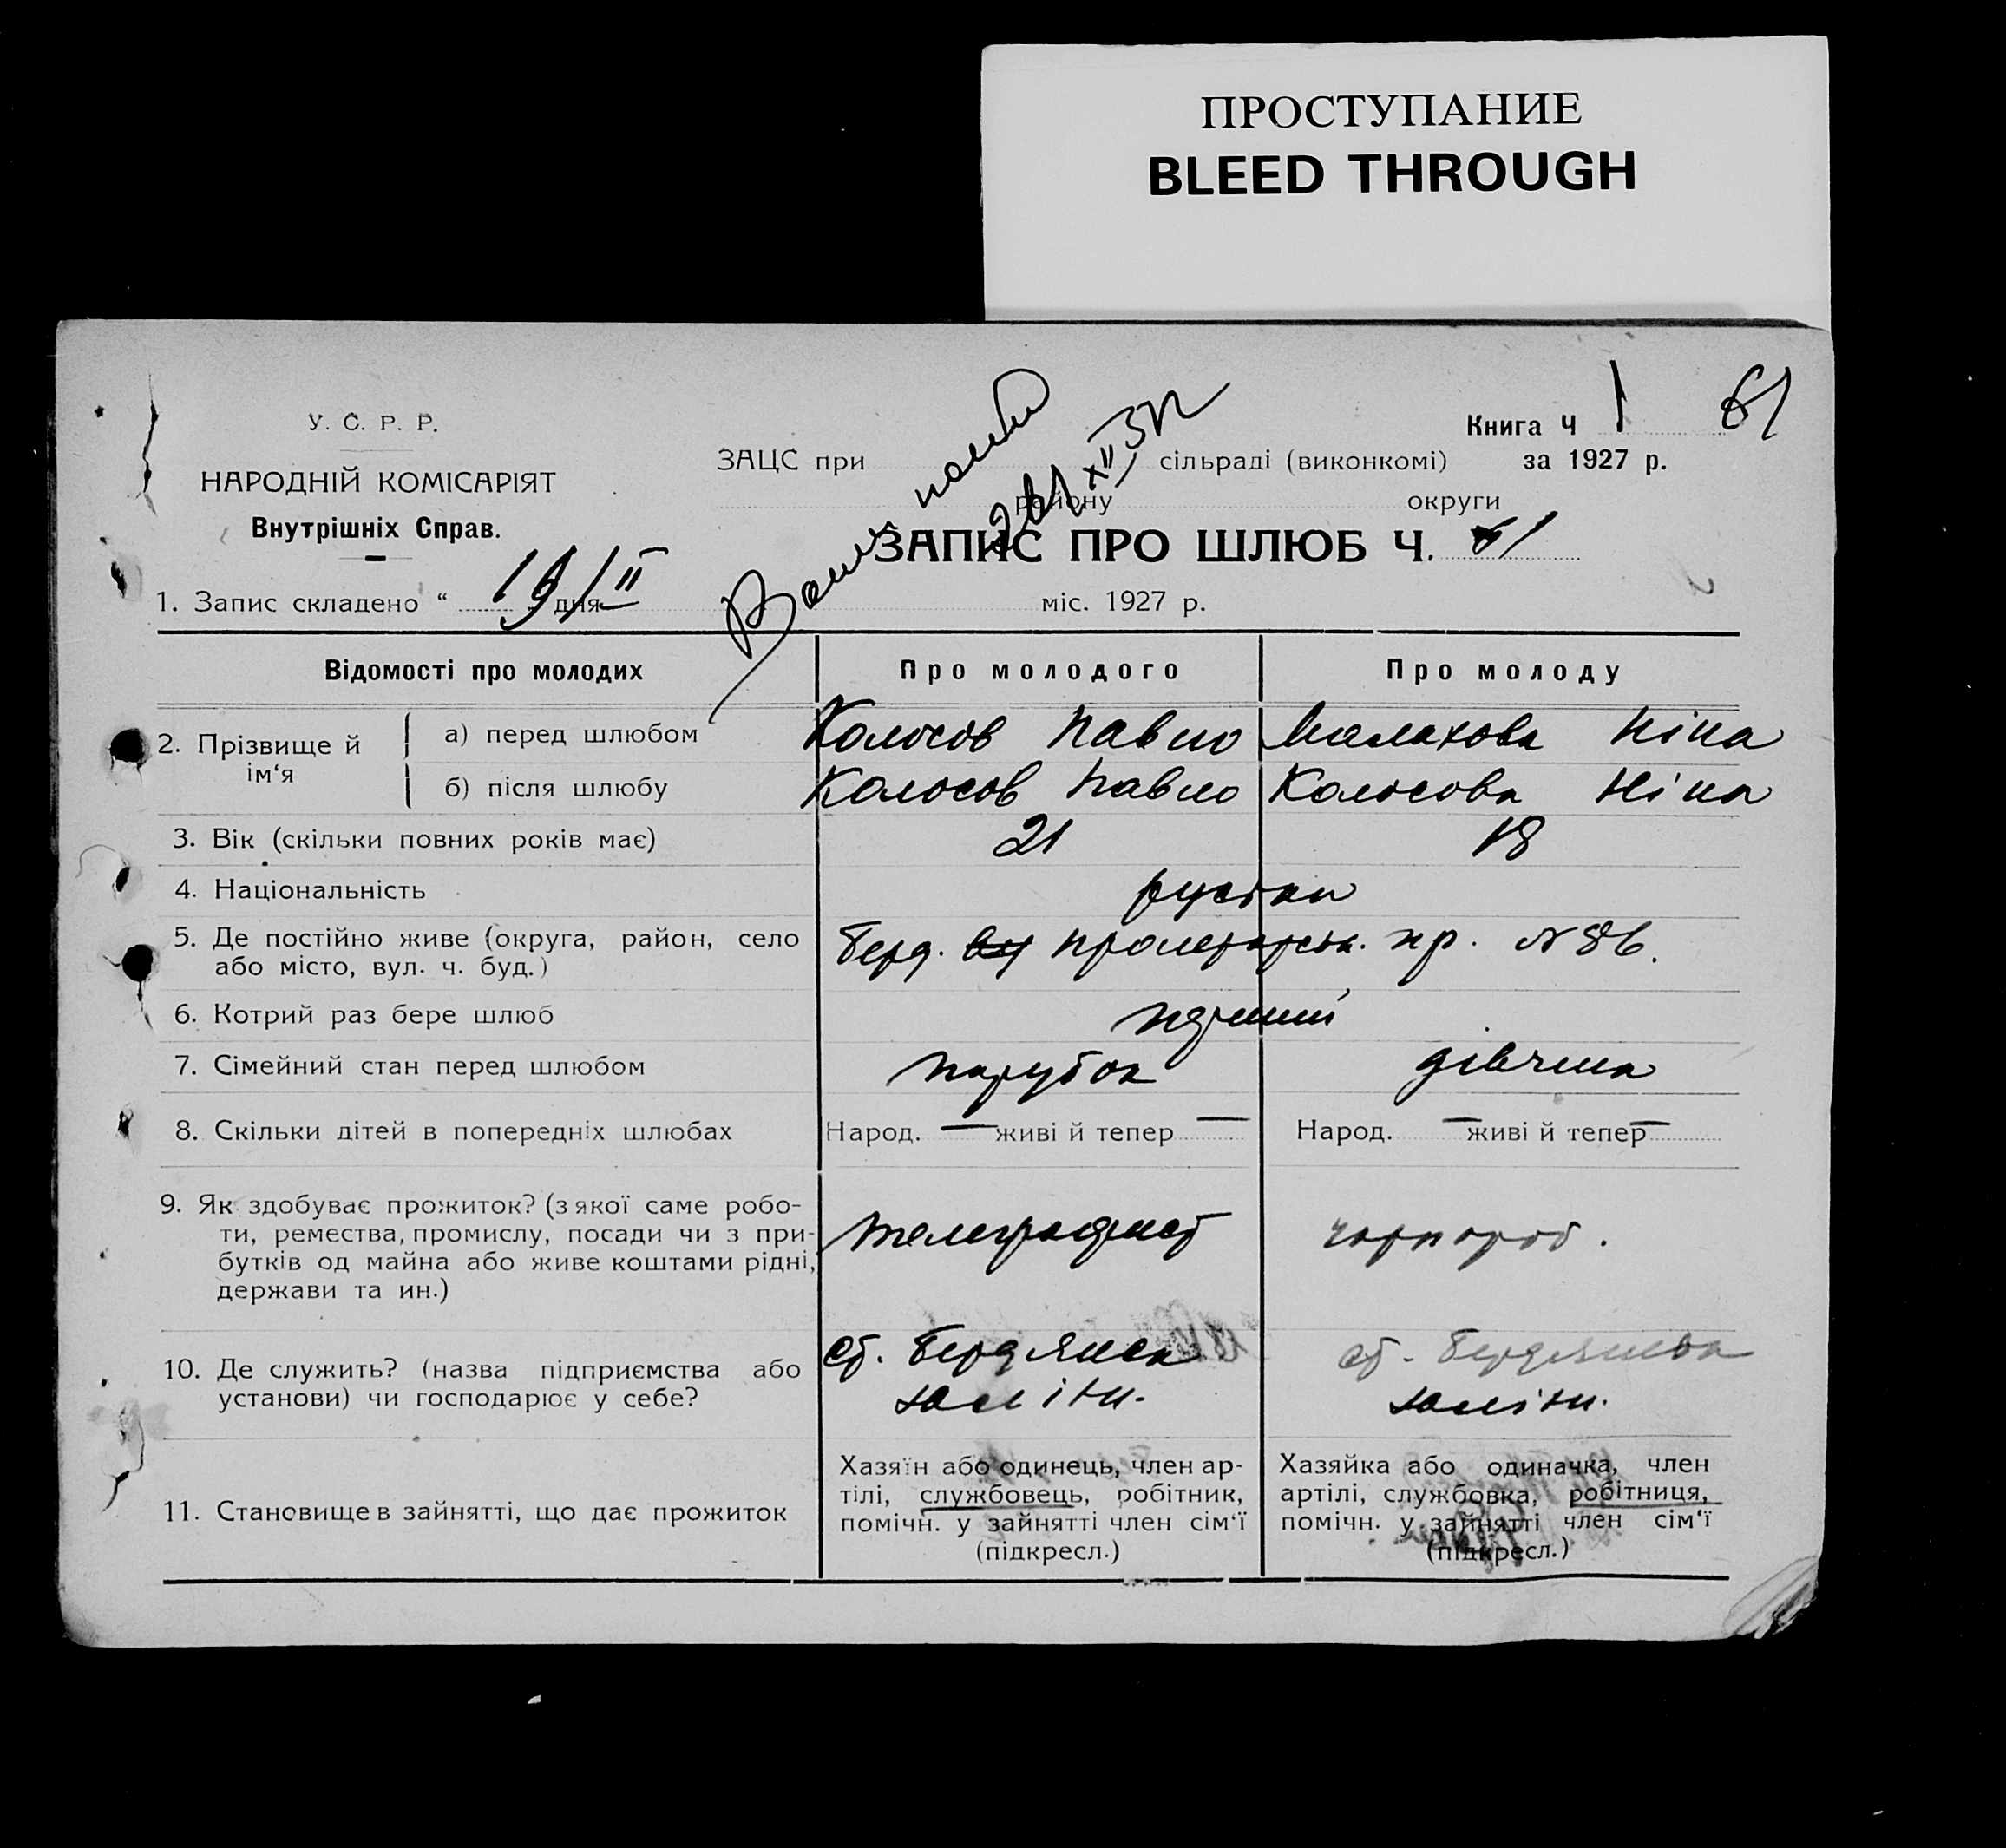 ПРОСТУПАНИЕ
BLEED THROUGH
У. С. Р. Р.
НАРОДНІЙ КОМІСАРІЯТ
Внутрішніх Справ.
Книга Ч 1 61
ЗАЦС при сільраді (виконкомі) за 1927 р.
району округи
ЗАПИС ПРО ШЛЮБ Ч. 61
1. Запис складено “ 19/II дня міс. 1927 р.
Відомості про молодих Про молодого Про молоду
2. Прізвище й ім‘я
а) перед шлюбом Колосов Павло Малахова Ніна
б) після шлюбу Колосов Павло Колосова Ніна
3. Вік (скільки повних років має) 21 18
4. Національність
5. Де постійно живе (округа, район, село
або місто, вул. ч. буд.) Берд. пролетарськ. пр. № 86.
6. Котрий раз бере шлюб перший
7. Сімейний стан перед шлюбом парубок дівчина
8. Скільки дітей в попередніх шлюбах Народ. — живі й тепер — Народ. — живі й тепер —
9. Як здобуває прожиток? (з якої саме робо-
ти, ремества, промислу, посади чи з при-
бутків од майна або живе коштами рідні,
держави та ин.)
телеграфист чорнороб.
10. Де служить? (назва підприємства або
установи) чи господарює у себе?
ст. Бердянськ
ст. Бердянськ
11. Становище в зайнятті, що дає прожиток
Хазяїн або одинець, член ар-
тілі, службовець, робітник,
помічн. у зайнятті член сім‘ї
(підкресл.)
Хазяйка або одиначка, член
артілі, службовка, робітниця,
помічн. у зайнятті член сім‘ї
(підкресл.)